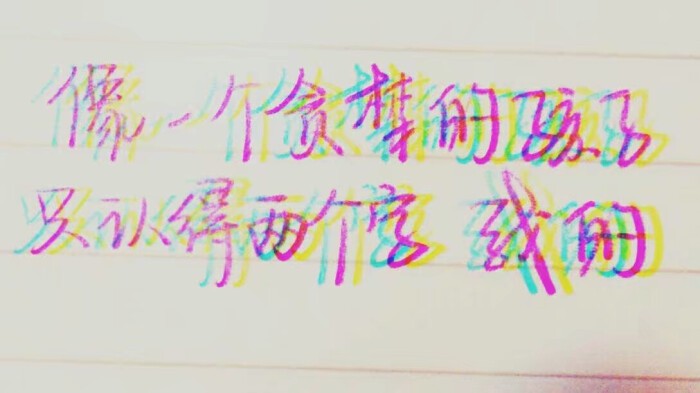 像一个贪婪的孩子
只认得两个字 我的